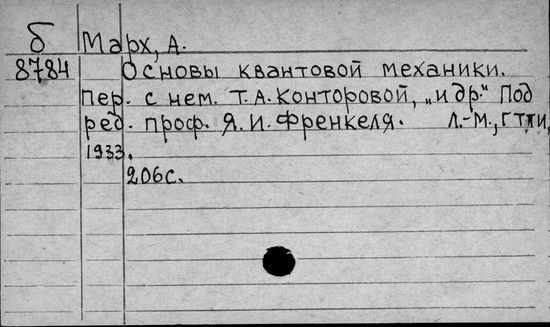 б Марх, А.
8784 Основы квантовой механики.
Пер. с нем. Т.А. Конторовой, „и др.“ Под
ред. проф. Я. И. Френкеля. Л.-М., ГТТИ,
1933.
206с.